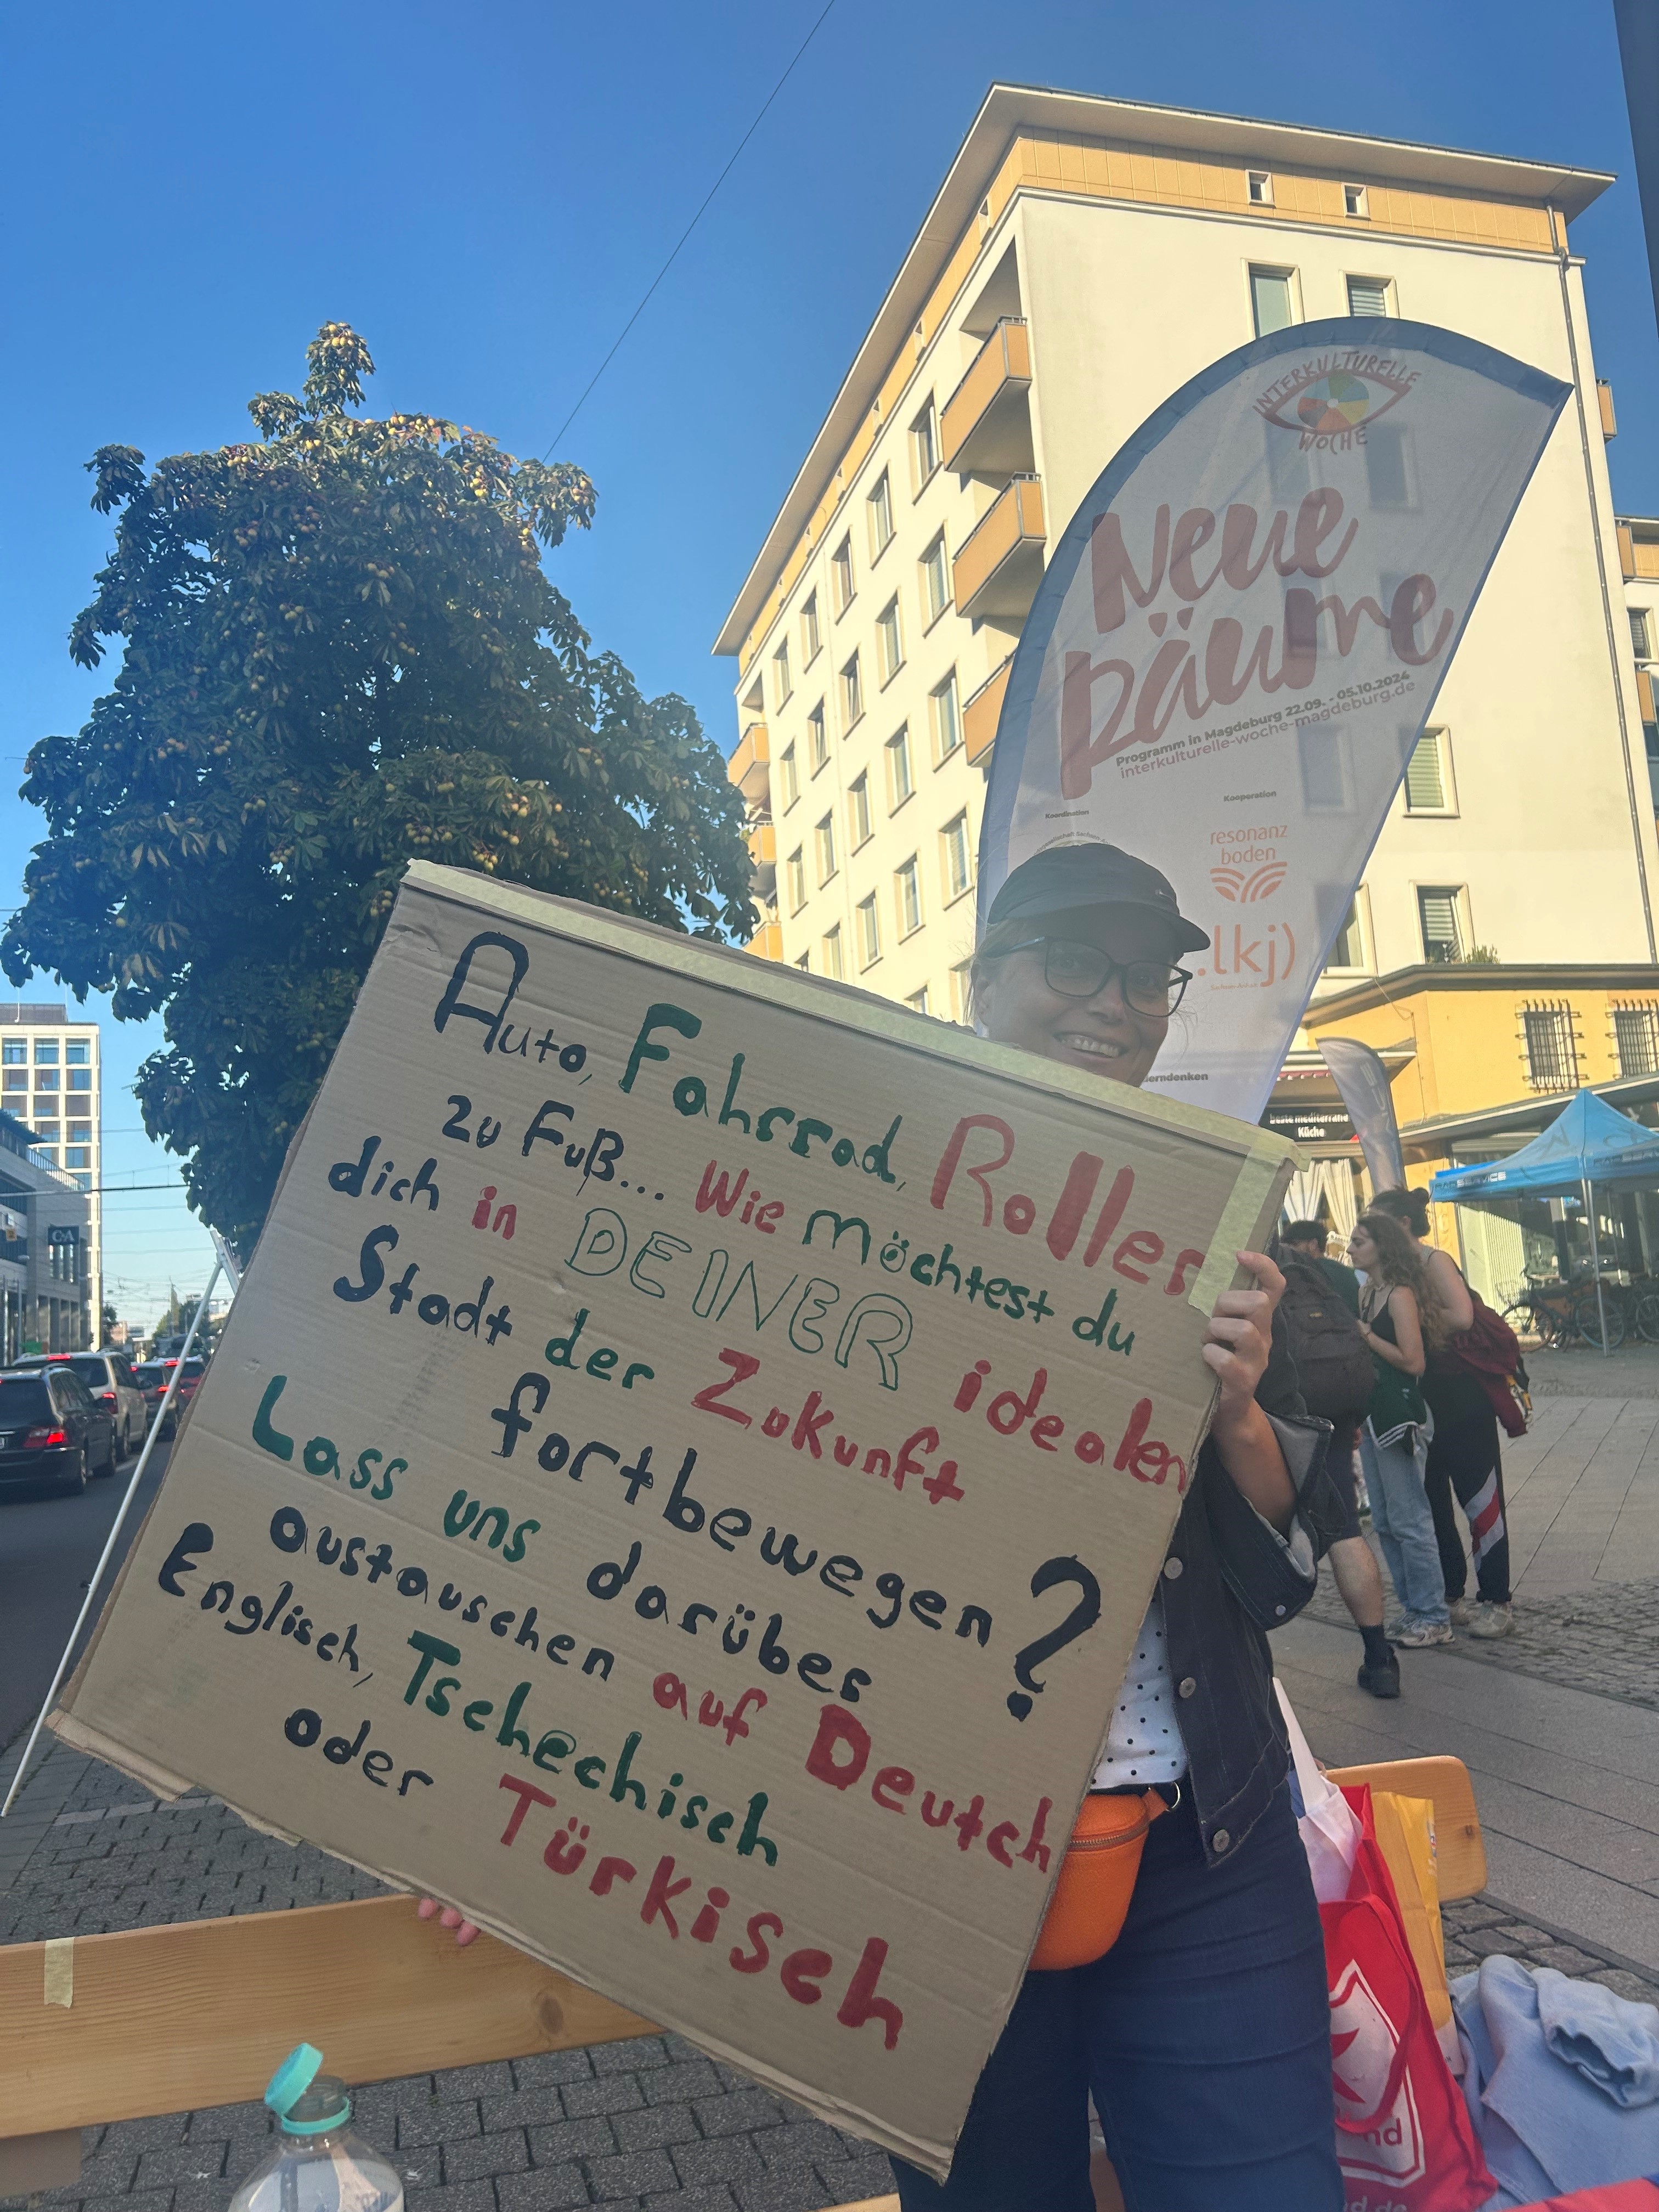 INTERKULTURELLE
WOCHE
Neue
Räume
Programm in Magdeburg 22.09. - 05.10.2024
interkulturelle-woche-magdeburg.de
Koordination
Kooperation
resonanz
boden
.lkj)
beste mediterrane
Küche
C&A
Auto, Fahrrad, Roller
zu Fuß... Wie möchtest du
dich in DEINER idealen
Stadt der Zukunft
fortbewegen?
Lass uns darüber
austauschen auf Deutch
Englisch, Tschechisch
oder Türkisch